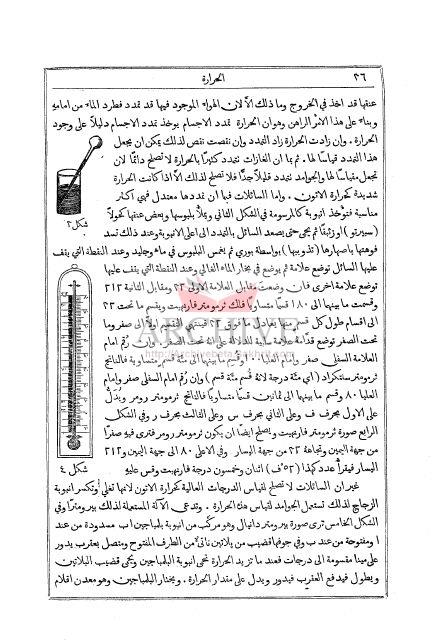 ٣٦
الحرارة
عنقها قد اخذ في الخروج وما ذلك الّا لان الهواء الموجود فيها قد تمدد فطرد الماء من امامهِ
وبناءً على هذا الامر الراهن وهو ان الحرارة تمدد الاجسام يوخذ تمدد الاجسام دليلًا على وجود
الحرارة . وإن زادت الحرارة زاد التمدد وإن نقصت نقص لذلك يمكن ان يجعل
هذا التمدد قياسًا لها . ثم بما ان الغازات تتمدد كثيرًا بالحرارة لا تصلح دائمًا لان
تجعل مقياسًا لها والجوامد تتمدد قليلًا جدًّا فلا تصلح لذلك الّا اذا كانت الحرارة
شديدة كحرارة الاتون . واما السائلات فبما ان تمددها معتدل فهي اكثر
مناسبة فتؤخذ انبوبة كالمرسومة في الشكل الثاني ويملأ بلبوسها وبعض عنقها كحولًا
(سبيرتو) او زئبقًا ثم يحمى حتى يصعد السائل بالتمدد الى اعلى الانبوبة وعند ذلك تسد
فوهتها باصهارها (تذويبها) بواسطة بوري ثم يغمس البلبوس في ماء وجليد وعند النقطة التي يقف
عليها السائل توضع علامة ثم يوضع في بخار الماء الغالي وعند النقطة التي يقف عليها
توضع علامة اخرى فان وضعت مقابل العلامة الاولى ٣٢ ومقابل الثانية ٢١٢
وقسمت ما بينها الى ١٨٠ قسمًا متساويًا فلك ثرمومتر فارنهيت ويقسم ما تحت ٣٢
الى اقسام طول كل قسم منها يعادل ما فوق ٣٢ فينتهي القسم اولًا الى صفر وما
تحت الصفر توضع قدامهُ علامة سلبية للدلالة على انهُ تحت الصفر . وإن رقم امام
العلامة السفلى صفر وامام العليا ١٠٠ وقسم ما بينها الى مئة قسم متساوية فالناتج
ثرمومتر سنتكراد (اي مئة درجة لانهُ قسم مئة قسم) وإن رُقم امام السفلى صفر وامام
العليا ٨٠ وقسم ما بينها الى ثمانين قسمًا متساويًا فالناتج ثرمومتر رومر ويُدَلُّ
على الاول بحرف ف وعلى الثاني بحرف س وعلى الثالث بحرف ر وفي الشكل
الرابع صورة ثرمومتر فارنهيت ويصلح ايضًا ان يكون ثرمومتر رومر فترى فيه صفرًا
من جهة اليمين وتجاهه ٣٢ من جهة اليسار وفي الاعلى ٨٠ الى جهة اليمين و٢١٢
اليسار فيقرأُ عدد كهذا (٥٢°ف) اثنان وخمسون درجة فارنهيت وقس عليهِ
غير ان السائلات لا تصلح لقياس الدرجات العالية كحرارة الاتون لانها تغلي وتكسر انبوبة
الزجاج لذلك تستعمل الجوامد لقياس هذه الحرارة . وتدعى الآلة المستعملة لذلك بيرومترًا وفي
الشكل الخامس ترى صورة بيرومتر دانيال وهو مركب من انبوبة بلمباجين اب مسدودة من عند
ا ومفتوحة من عند ب وفي جوفها قضيب من پلاتين ناتئٌ من الطرف المفتوح ومتصل بعقرب يدور
على مينا مقسومة الى درجات فعند ما تزيد الحرارة تحمى انبوبة البلمباجين ويحمى قضيب البلاتين
ويطول فيدفع العقرب فيدور ويدل على مقدار الحرارة . ويختار البلمباجين وهو معدن اقلام
شكل ٢
شكل ٤
ARCHIVE